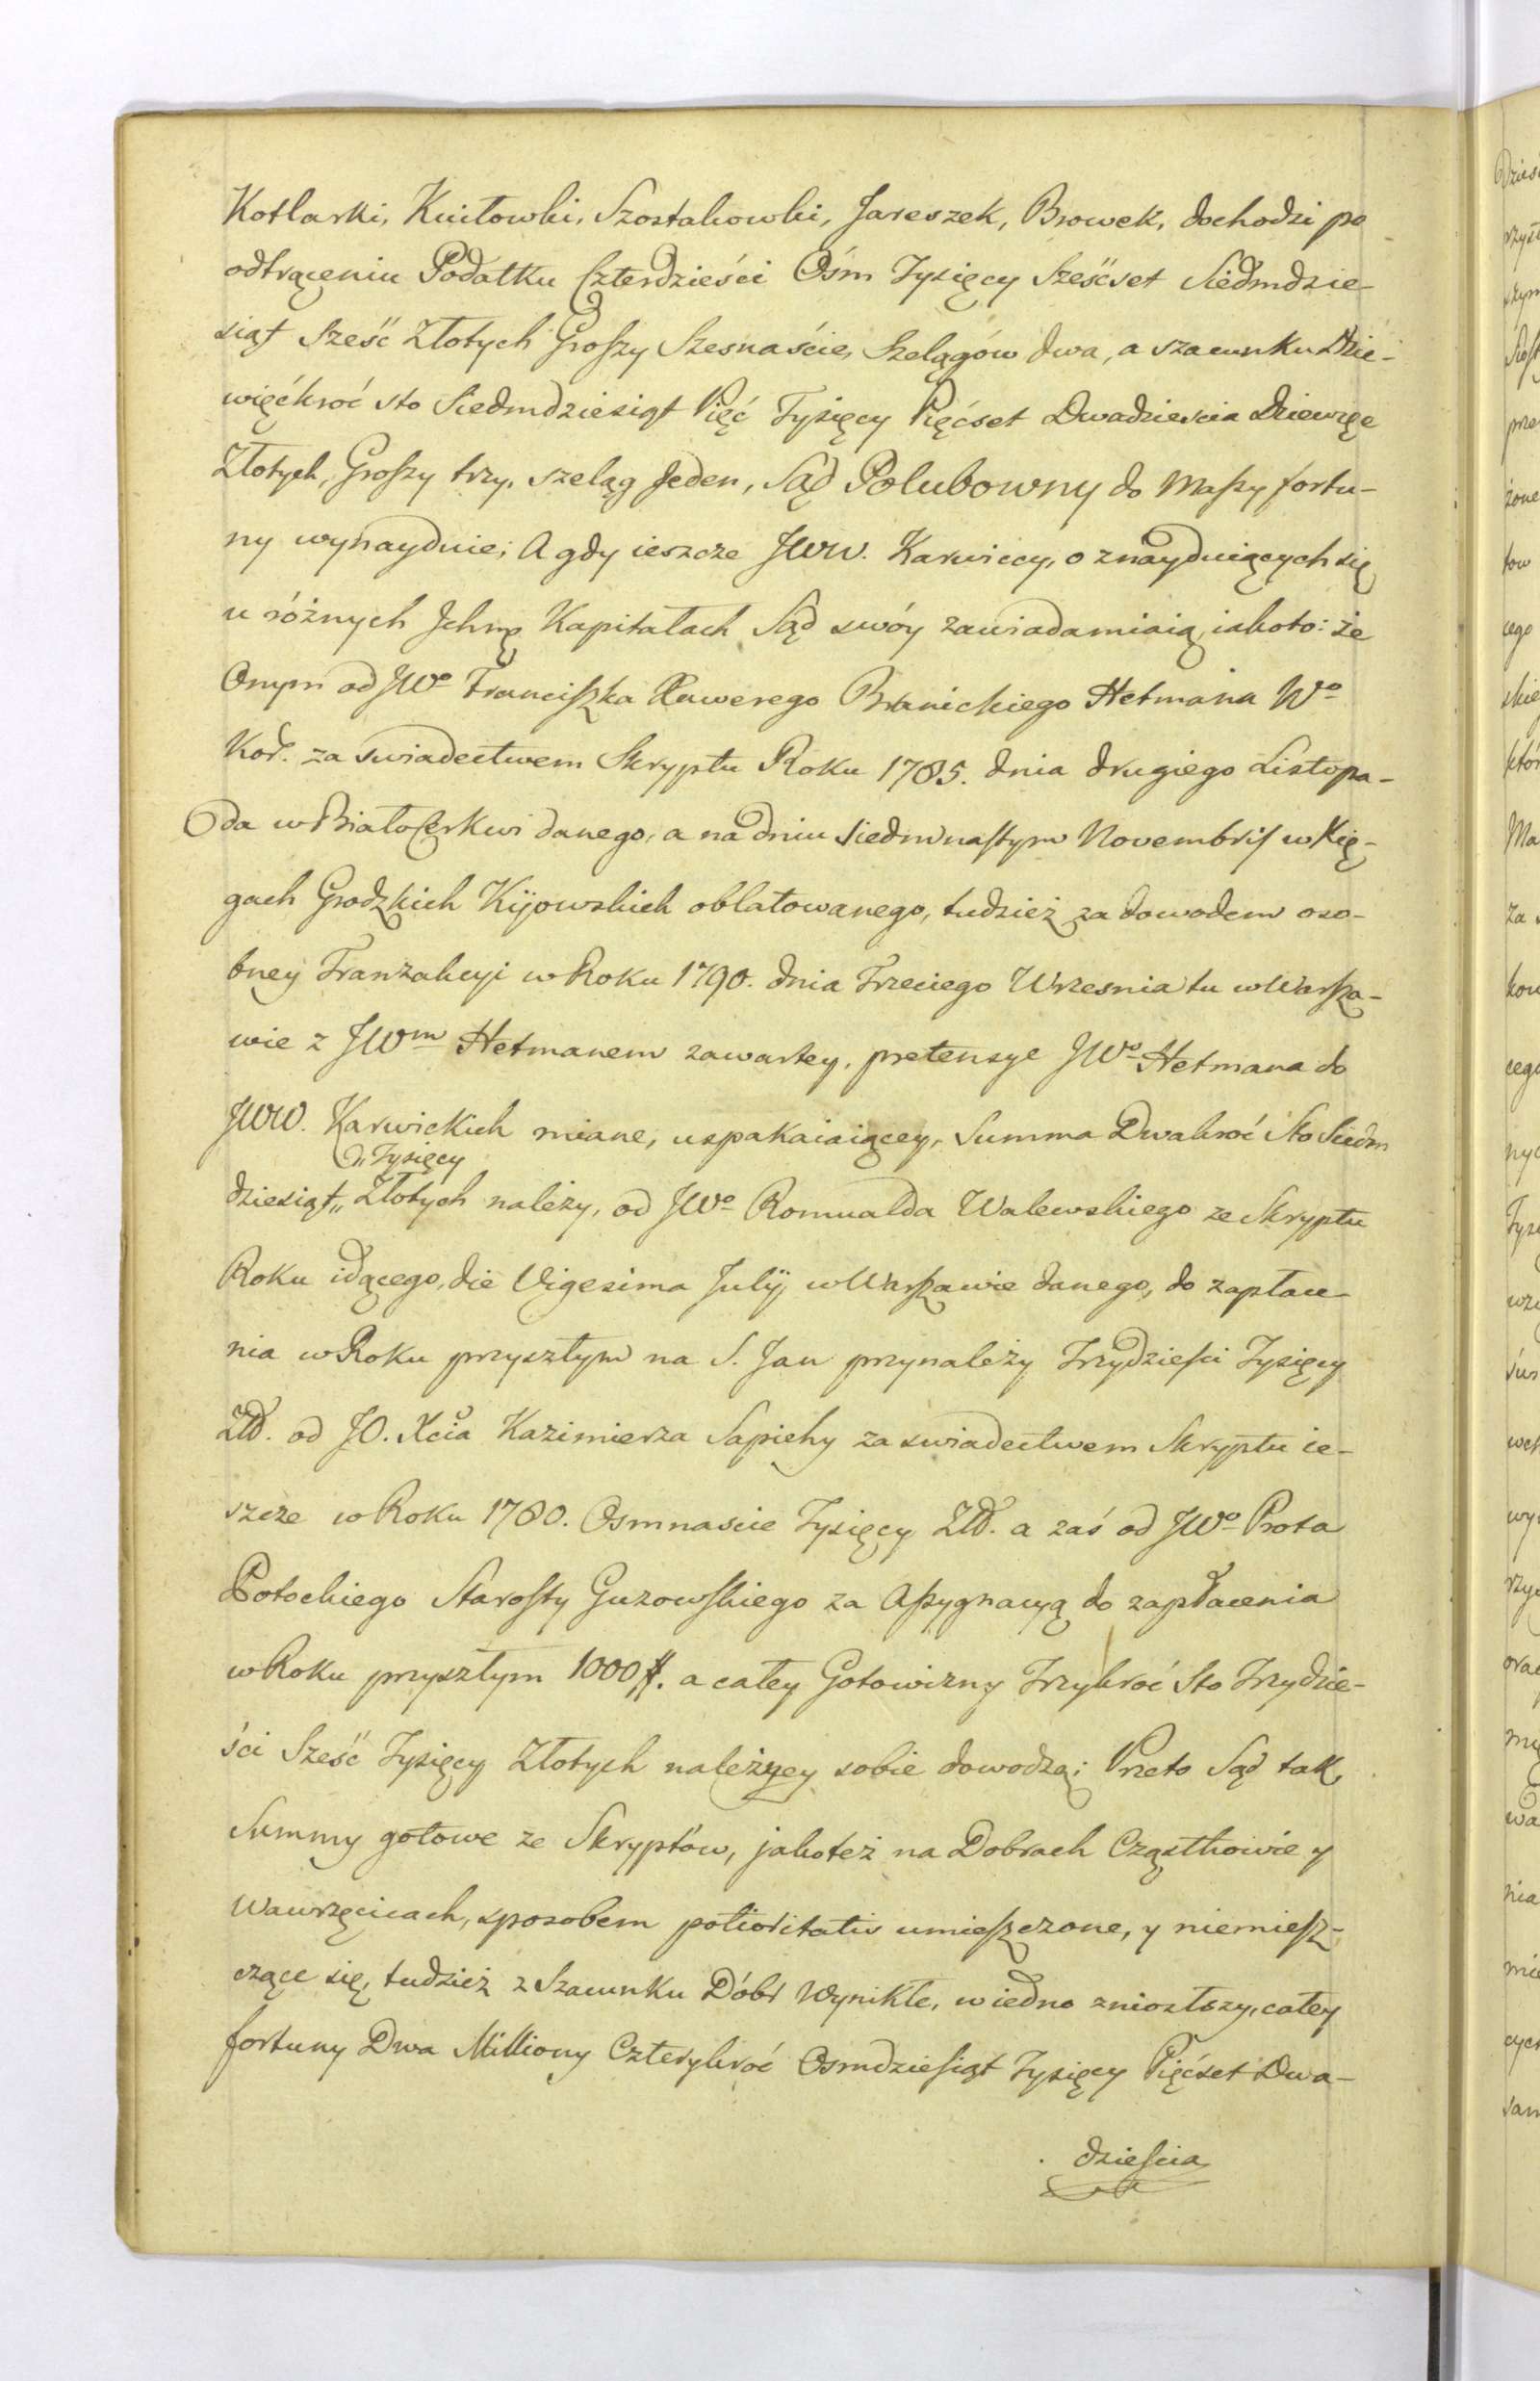 Kotlarki, Kuiłowki, Szostakowki, Jareszek, Browek, dochodzi po
odtrąceniu Podatku Czterdzieści Ośm Tysięcy Sześćset Siedmdzie-
siąt Sześć Złotych Groszy Szesnaście, Szelągów dwa, a szacunku Dzie-
więćkroć sto Siedmdziesiąt Pięć Tysięcy Pięćset Dwadziescia Dziewięc
Złotych, Groszy trzy, szeląg Jeden, Sąd Polubowny do Massy fortu-
ny wynayduie; A gdy ieszcze JWW. Karwiccy, o znayduiących się
u różnych Ichmę Kapitałach Sąd swóy zawiadamiaią, iakoto: że
Onym od JWo Franciszka Xawerego Branickiego Hetmana Wo
Kor. za swiadectwem Skryptu Roku 1785. dnia drugiego Listopa-
da w BiałoCerkwi danego, a na dniu siedmnastym Novembris w Xię-
gach Grodzkich Kijowskich oblatowanego, tudzież za dowodem oso-
bney Tranzakcyi w Roku 1790. dnia Trzeciego Wrzesnia tu w Warsza-
wie z JWm Hetmanem zawartey, pretensye JWo Hetmana do
JWW. Karwickich miane, uspakaiaiącey, Summa Dwakroć Sto Siedm
" Tysięcy
dziesiąt" Złotych należy, od JWo Romualda Walewskiego ze Skryptu
Roku idącego, die Vigesima Julij w Warszawie danego, do zapłace-
nia w Roku przyszłym na S. Jan przynależy Trzydziesci Tysięcy
Złł. od JO. Xcia Kazimierza Sapiehy za swiadectwem Skryptu ie-
szcze w Roku 1780. Osmnascie Tysięcy Złł. a zaś od JWo Prota
Potockiego Starosty Guzowskiego za Assygnacyą do zapłacenia
w Roku przyszłym 1000 #. a całey Gotowizny Trzykroć Sto Trzydzie-
ści Sześć Tysięcy Złotych należącey sobie dowodzą; Przeto Sąd tak,
Summy gotowe ze Skryptów, jakoteż na Dobrach Cząstkowie y
Wawrzęcicach, sposobem potioritatis umieszczone, y niemiesz-
czące się, tudzież z Szacunku Dóbr Wynikłe, w iedno zniozłszy, całey
fortuny Dwa Milliony Czterykroć Osmdziesiąt Tysięcy Pięćset Dwa-
dziescia